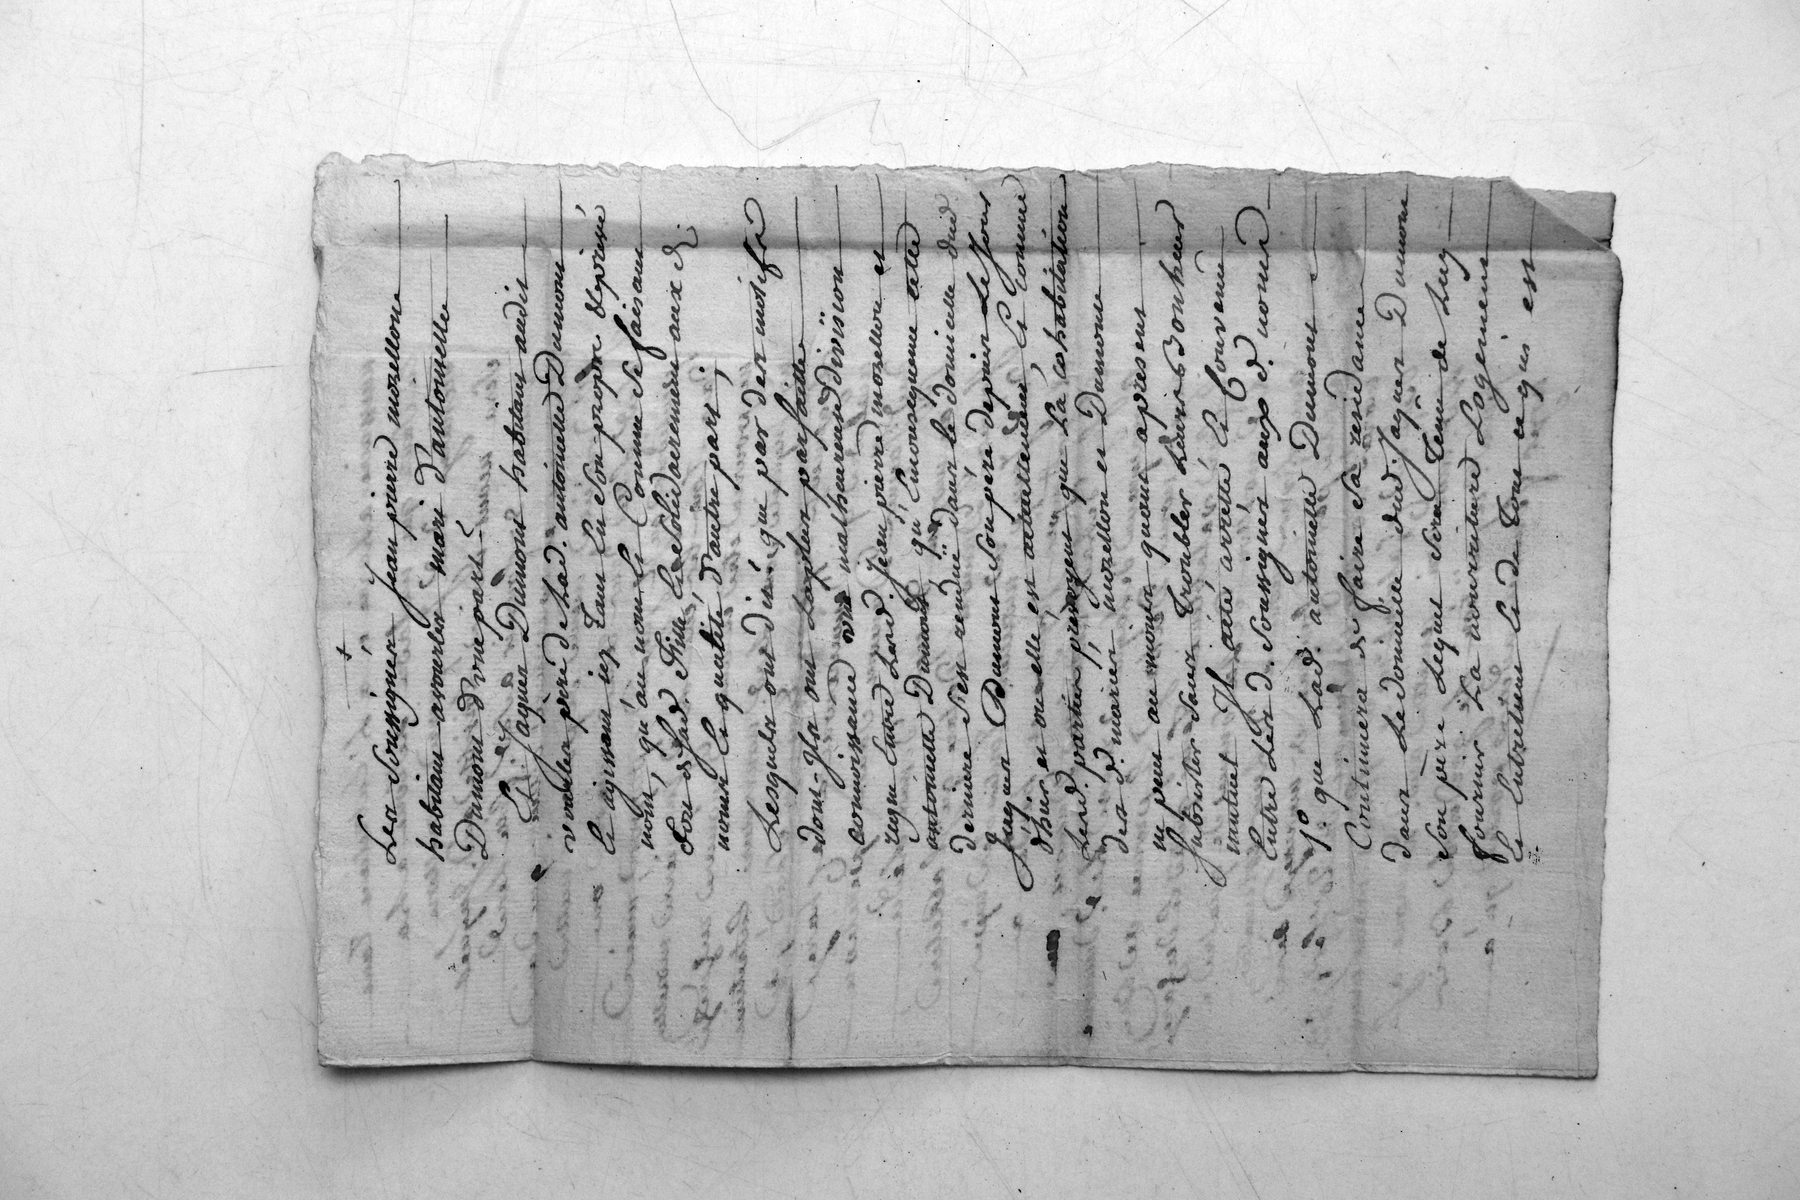 +
Les soussignés jean pierre morellon
habitant avourles mari d'antoinette
Dumont d'une part
Et jaques Dumont habitant audit
vourles père de lad. antoinette Dumont
ci agissant icy tant en son propre & privé
nom, qu'au nom & comme se faisant
fort de lad. fille & solidairement aux d.
nom & qualité d'autre part;
Lesquels ont dis, que par des motifs
dont ils ont la plus parfaite
connoissance une malheureuse division
regne entre led. jean pierre morellon et
antoinette Dumont qu'en consequence cette
derniere s'est rendüe dans le domicille dud.
jaques Dumont son père depuis le jour
d'hier et ou elle est actuellement, et comme
lesd. parties prévoyent que la cohabitation
des d. mariés morellon et Dumont
ne peut au moins quant apresent
subsister sans troubler leurs bonheur
mutuel Il aété arretté et convenu
entre lesd. soussignés aux d. noms
1°. que lad. antoinette Dumont
continuera de faire sa residance
dans le domicille dud. jaques Dumont
son père lequel sera tenu de luy
fournir la nourriture logement
et entretien et de tout ce qui est